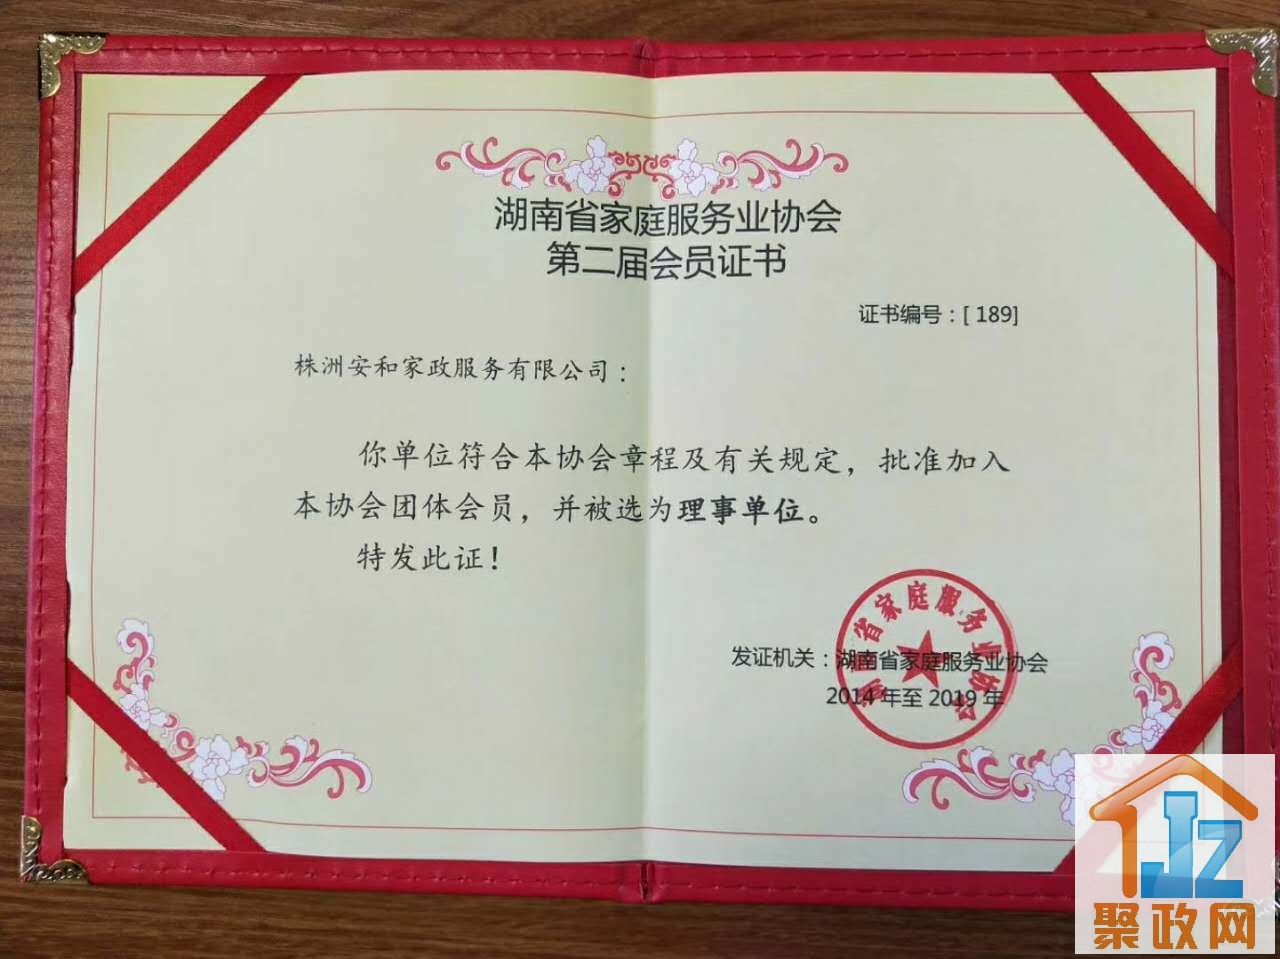 湖南省家庭服务业协会
第二届会员证书
证书编号：[ 189]
株洲安和家政服务有限公司：
你单位符合本协会章程及有关规定，批准加入
本协会团体会员，并被选为理事单位。
特发此证！
湖南省家庭服务业协会
发证机关：湖南省家庭服务业协会
2014 年至 2019 年
JZ
聚政网